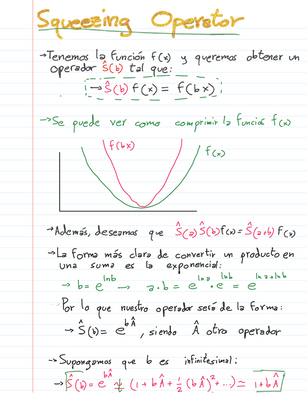 Squeezing Operator
→Tenemos la función f(x) y queremos obtener un
operador Ŝ(b) tal que:
→Ŝ(b) f(x) = f(bx)
→Se puede ver como comprimir la función f(x)
f(bx)
f(x)
→Además, deseamos que Ŝ(a)Ŝ(b)f(x)=Ŝ(a+b) f(x)
→La forma más clara de convertir un producto en
una suma es la exponencial:
→ b= e^{lnb} → a·b = e^{lna}·e^{lnb} = e^{lna+lnb}
Por lo que nuestro operador será de la forma:
→ Ŝ(b)= e^{bÂ}, siendo Â otro operador
→Supongamos que b es infinitesimal:
→ Ŝ(b)= e^{bÂ} ≈ (1+bÂ+½(bÂ)²+...) ≃ 1+bÂ